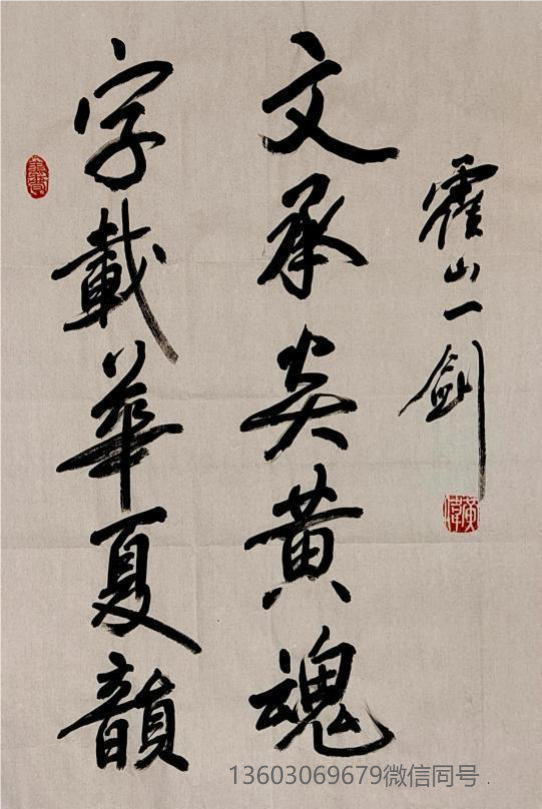 霍山一剑
文承炎黄魂
字載華夏韻
13603069679微信同号